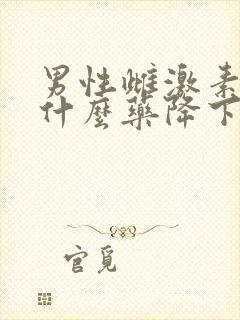 男性雌激素
什麼藥降下
官覓